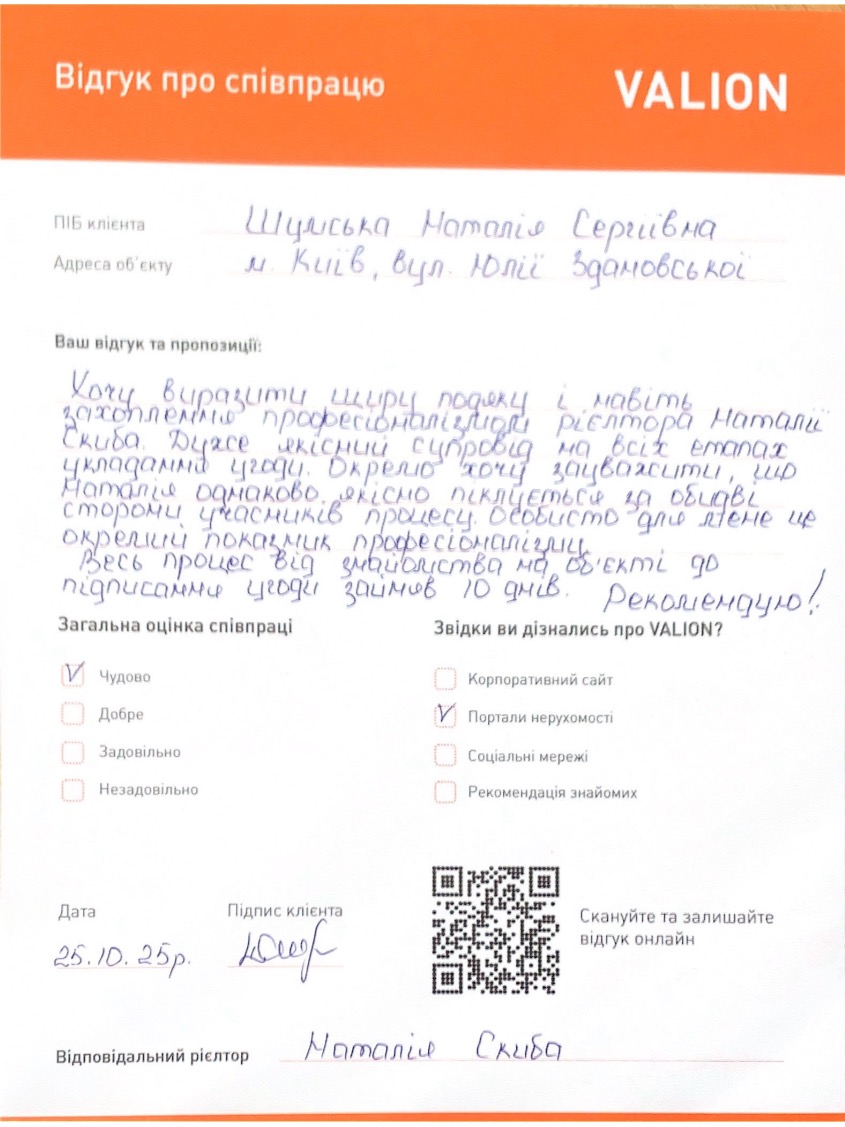 Відгук про співпрацю
VALION
ПІБ клієнта Шумська Наталія Сергіївна
Адреса об'єкту м. Київ, вул. Юлії Здановської
Ваш відгук та пропозиції:
Хочу виразити щиру подяку і навіть
захоплення професіоналізмом рієлтора Наталії
Скиба. Дуже якісний супровід на всіх етапах
укладання угоди. Окремо хочу зауважити, що
Наталія однаково якісно піклується за обидві
сторони учасників процесу. Особисто для мене це
окремий показник професіоналізму.
Весь процес від знайомства на об'єкті до
підписання угоди зайняв 10 днів. Рекомендую!
Загальна оцінка співпраці
V Чудово
Добре
Задовільно
Незадовільно
Звідки ви дізнались про VALION?
Корпоративний сайт
V Портали нерухомості
Соціальні мережі
Рекомендація знайомих
Дата
25.10.25р.
Підпис клієнта
Скануйте та залишайте
відгук онлайн
Відповідальний рієлтор Наталія Скиба